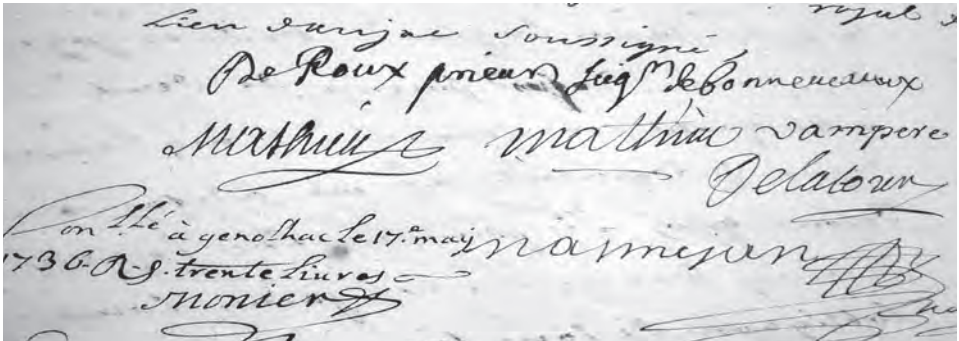 royal
Lieu danjac soussigné
De Roux prieur seigr de bonneuaux
Mathieu mathieu vampere
Delatour
Contllé à genolhac le 17.e may
1736. R. s. trente livres
Monier